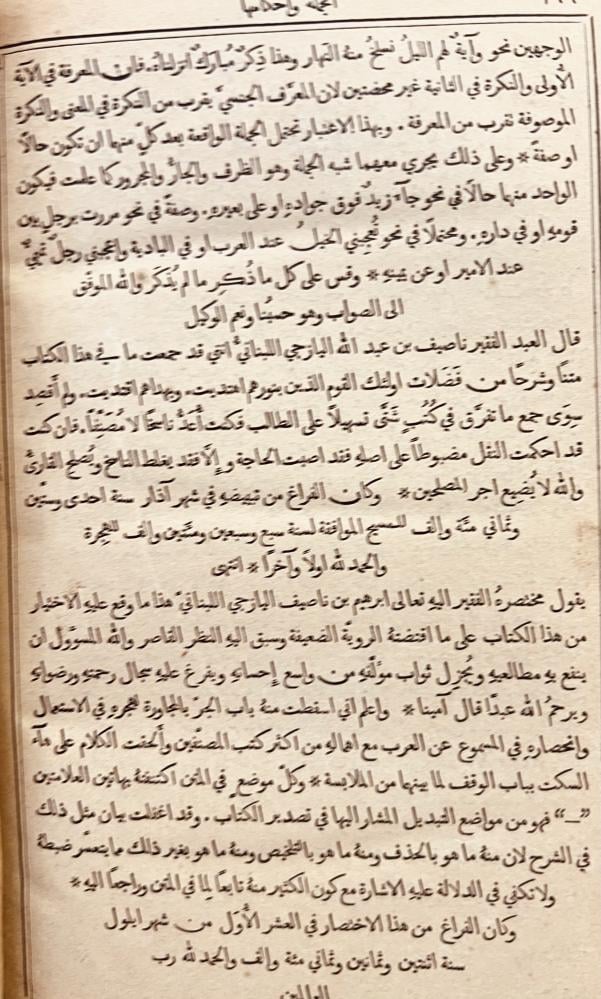 الجملة واحكامها
الوجهين نحو وآيةٌ لهم الليلُ نسلخُ منهُ النهار وهذا ذِكرٌ مُبارَكٌ انزلناهُ. فان المعرفة في الآية
الأولى والنكرة في الثانية غير محضتين لان المعرَّف الجنسيَّ يقرب من النكرة في المعنى والنكرة
الموصوفة تقرب من المعرفة. وبهذا الاعتبار تحتمل الجملة الواقعة بعد كلٍّ منها ان تكون حالاً
او صفةً * وعلى ذلك يجري معهما شبه الجملة وهو الظرف والجارُّ والمجرور كما علمت فيكون
الواحد منها حالاً في نحو جآءَ زيدٌ فوق جوادهِ او على بعيرهِ. وصفةً في نحو مررت برجلٍ بين
قومهِ او في دارهِ. ومحتملاً في نحو تُعجِبني الخيلُ عند العرب او في البادية واعجبني رجلٌ تميميٌّ
عند الامير او عن يمينهِ * وقس على كل ما ذُكِر ما لم يُذكَر والله الموفّق
الى الصواب وهو حسبُنا ونعم الوكيل
قال العبد الفقير ناصيف بن عبد الله اليازجي اللبنانيُّ انني قد جمعت ما في هذا الكتاب
متنًا وشرحًا من فَضَلات اولئك القوم الذين بنورهم اهتديت. وبهداهم اقتديت. ولم أَقصِد
سِوَى جمع ما تفرَّق في كُتُبٍ شتَّى تسهيلاً على الطالب فكنت أُعَدُّ ناسخًا لا مُصَنِّفًا. فان كنت
قد احكمت النقل مضبوطًا على اصلهِ فقد اصبت الحاجة وإلَّا فقد يغلط الناسخ ويُصلِح القارئُ
والله لا يُضِيع اجر المصلحين * وكان الفراغ من تبييضهِ في شهر آذار سنة احدى وستّين
وثماني مئة والف للمسيح الموافقة لسنة سبع وسبعين ومئتين والف للهجرة
والحمد لله اولاً وآخرًا * انتهى
يقول مختصرهُ الفقير اليهِ تعالى ابرهيم بن ناصيف اليازجي اللبنانيّ هذا ما وقع عليهِ الاختيار
من هذا الكتاب على ما اقتضتهُ الرويّة الضعيفة وسبق اليهِ النظر القاصر والله المسؤول ان
ينفع بهِ مطالعيهِ ويُجزِل ثواب مؤلّفهِ من واسع إحسانهِ ويفرغ عليهِ سجال رحمتهِ ورضوانهِ
ويرحمُ الله عبدًا قال آمينا * واعلم اني اسقطت منهُ باب الجرّ بالمجاورة لهجرهِ في الاستعمال
وانحصارهِ في المسموع عن العرب مع اهمالهِ من اكثر كتب المصنّفين وأَلحقت الكلام على هآء
السكت بباب الوقف لما بينهما من الملابسة * وكلّ موضع في المتن اكتنفتهُ بهاتين العلامتين
”ــ“ فهو من مواضع التبديل المشار اليها في تصدير الكتاب. وقد اغفلت بيان مثل ذلك
في الشرح لان منهُ ما هو بالحذف ومنهُ ما هو بالتلخيص ومنهُ ما هو بغير ذلك مما يتعسَّر ضبطهُ
ولا تكفي في الدلالة عليهِ الاشارة مع كون الكثير منهُ تابعًا لما في المتن وراجعًا اليهِ *
وكان الفراغ من هذا الاختصار في العشر الأُوَل من شهر ايلول
سنة اثنتين وثمانين وثماني مئة والف والحمد لله رب
العالمين